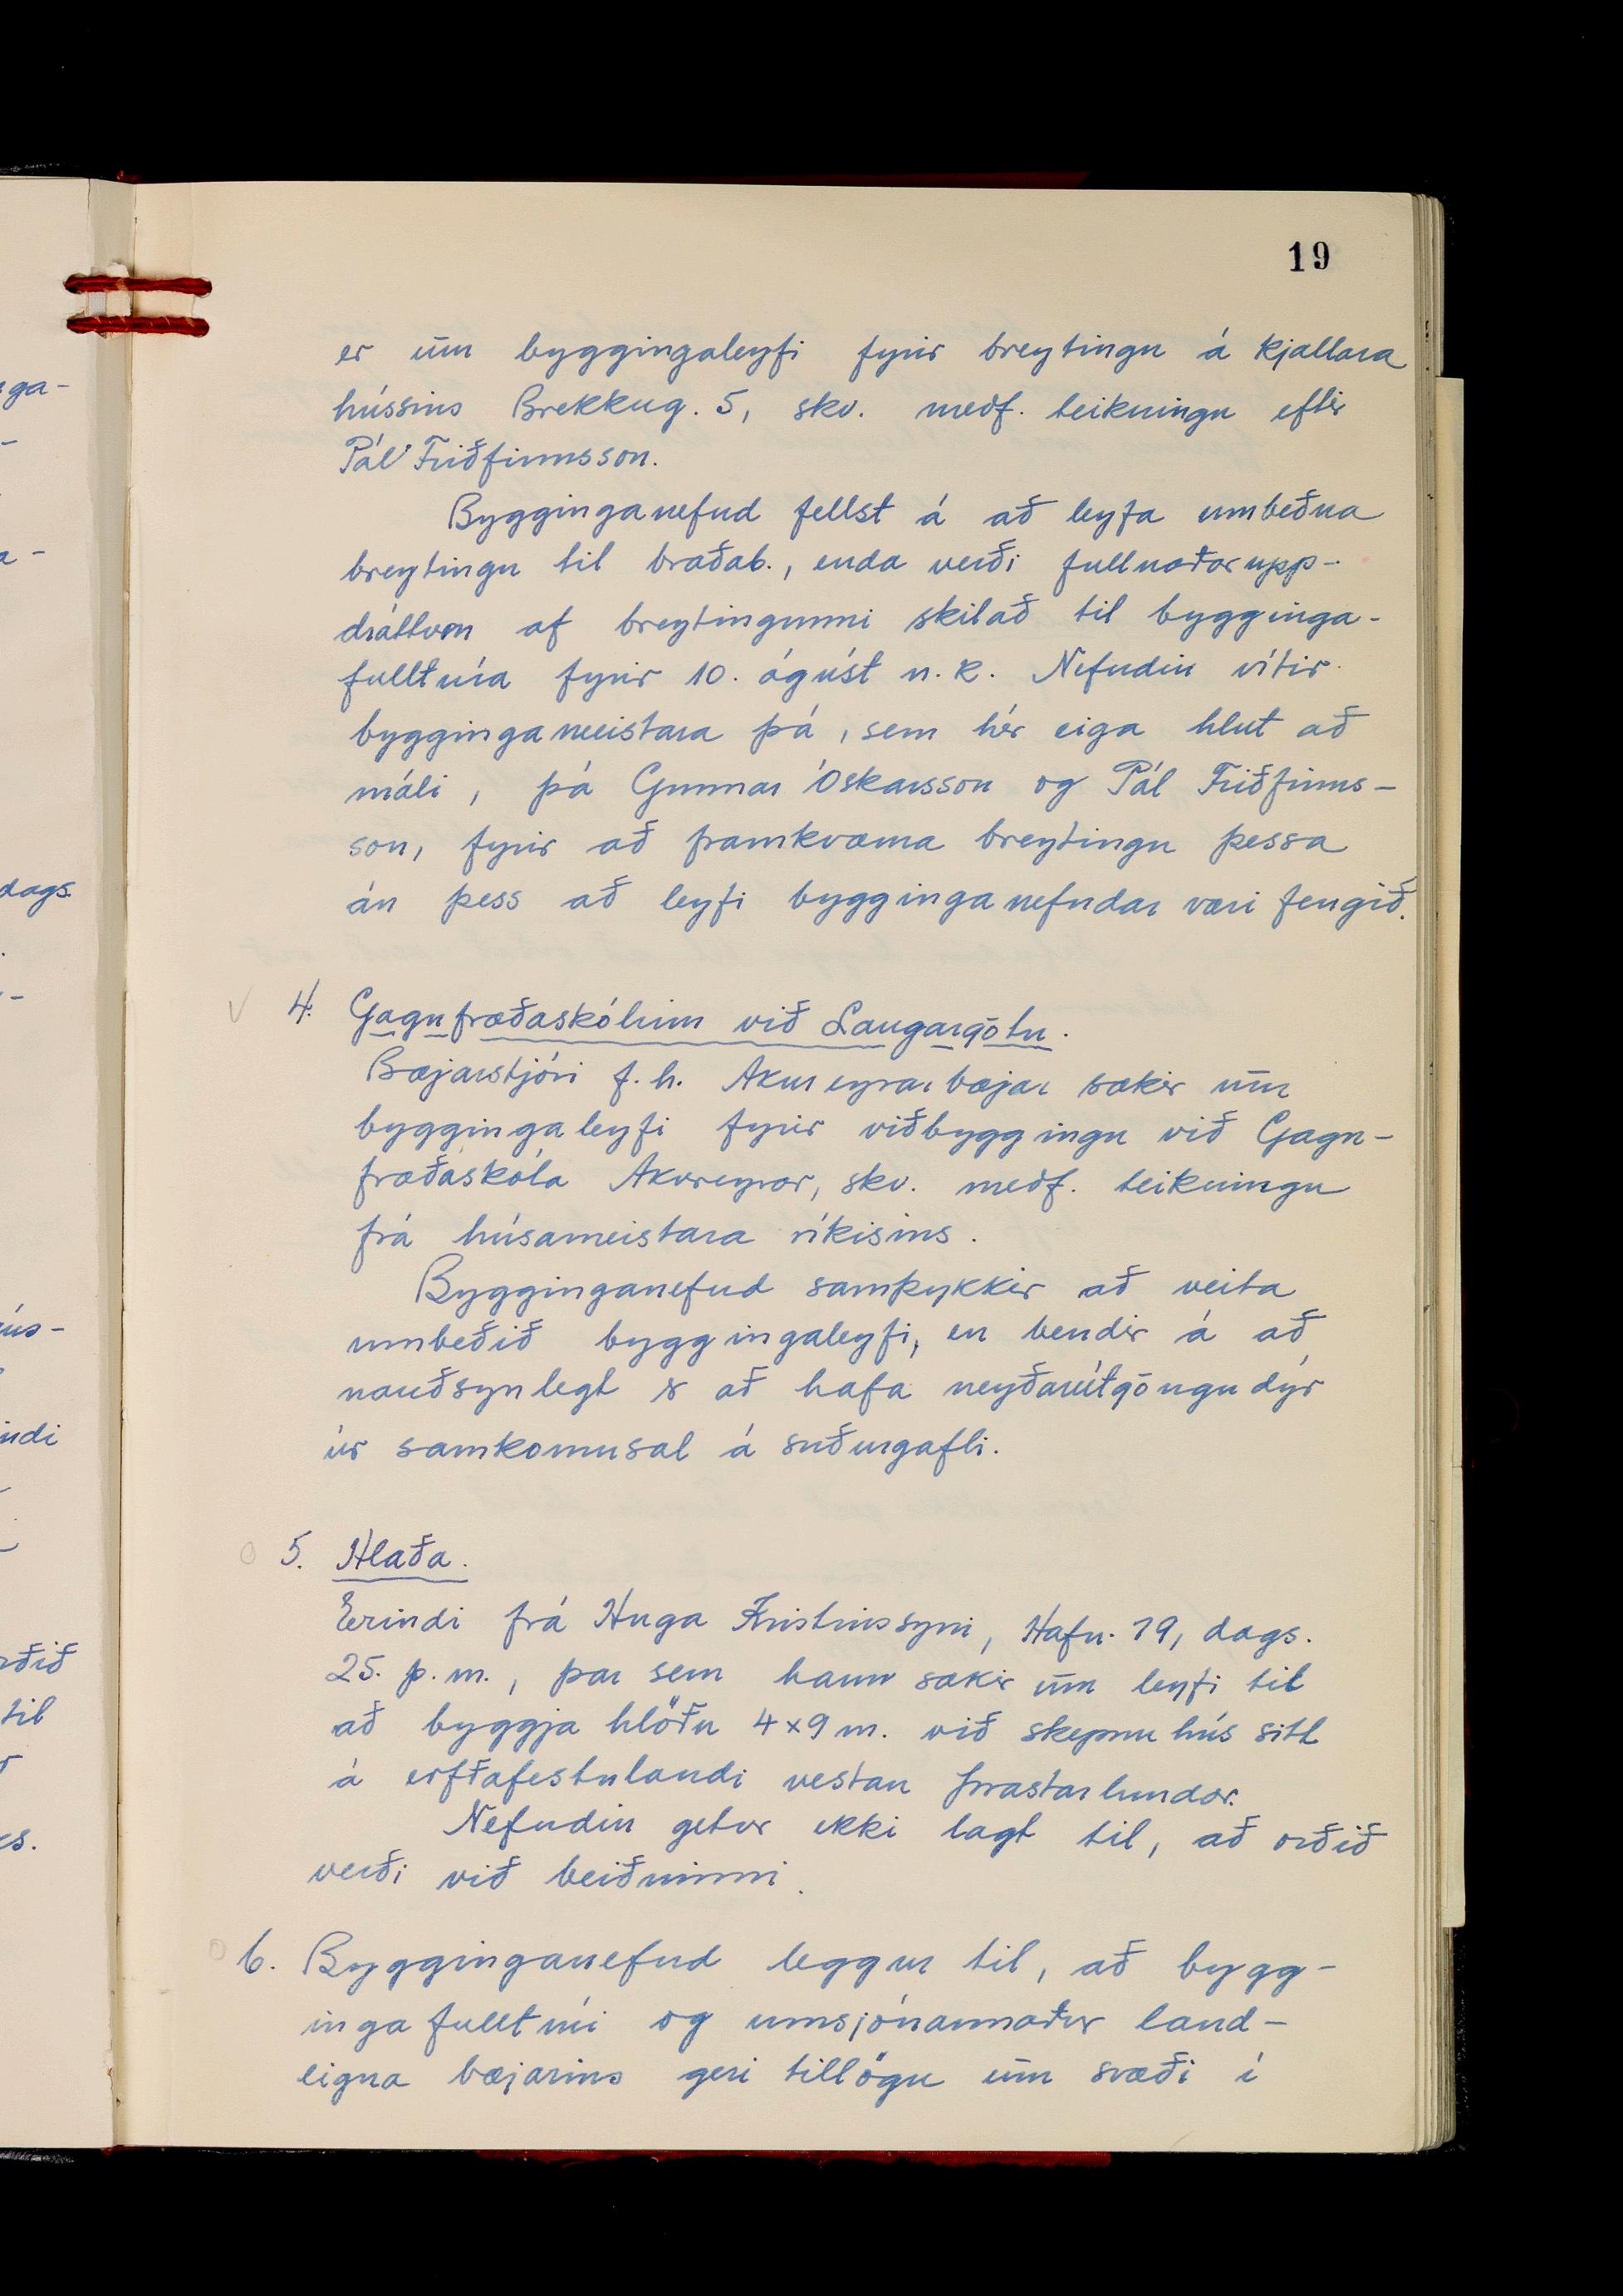 19
er um byggingaleyfi fyrir breytingu á kjallara
hússins Brekkug. 5, skv. meðf. teikningu eftir
Pál Friðfinnsson.
Bygginganefnd fellst á að leyfa umbeðna
breytingu til bráðab., enda verði fullnaðarupp-
dráttum af breytingunni skilað til bygginga-
fulltrúa fyrir 10. ágúst n.k. Nefndin vítir
byggingameistara þá, sem hér eiga hlut að
máli, þá Gunnar Óskarsson og Pál Friðfinns-
son, fyrir að framkvæma breytingu þessa
án þess að leyfi bygginganefndar væri fengið.
4. Gagnfræðaskólinn við Laugargötu.
Bæjarstjóri f.h. Akureyrarbæjar sækir um
byggingaleyfi fyrir viðbyggingu við Gagn-
fræðaskóla Akureyrar, skv. meðf. teikningu
frá húsameistara ríkisins.
Bygginganefnd samþykkir að veita
umbeðið byggingaleyfi, en bendir á að
nauðsynlegt er að hafa neyðarútgöngudyr
úr samkomusal á suðurgafli.
5. Hlaða.
Erindi frá Huga Kristinssyni, Hafn. 19, dags.
25. þ.m., þar sem hann sækir um leyfi til
að byggja hlöðu 4x9 m. við skepnuhús sitt
á erfðafestulandi vestan Þrastarlundar.
Nefndin getur ekki lagt til, að orðið
verði við beiðninni.
6. Bygginganefnd leggur til, að bygg-
ingafulltrúi og umsjónarmaður land-
eigna bæjarins geri tillögu um svæði í